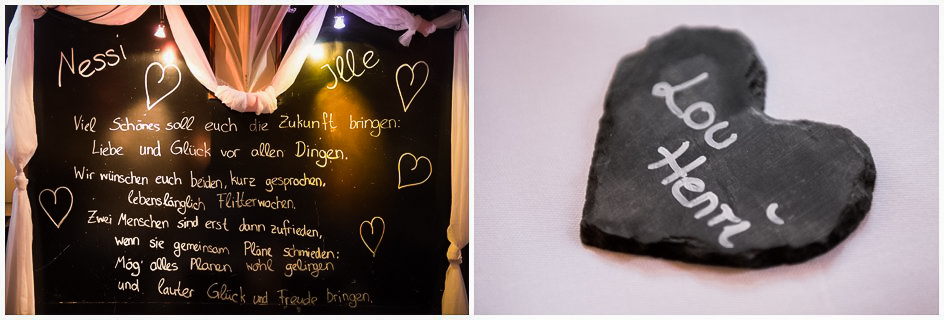 Nessi
Jlle
Viel Schönes soll euch die Zukunft bringen:
Liebe und Glück vor allen Dingen.
Wir wünschen euch beiden, kurz gesprochen,
lebenslänglich Flitterwochen.
Zwei Menschen sind erst dann zufrieden,
wenn sie gemeinsam Pläne schmieden:
Mög' alles Planen wohl gelingen
und lauter Glück und Freude bringen.
Lou
Henri